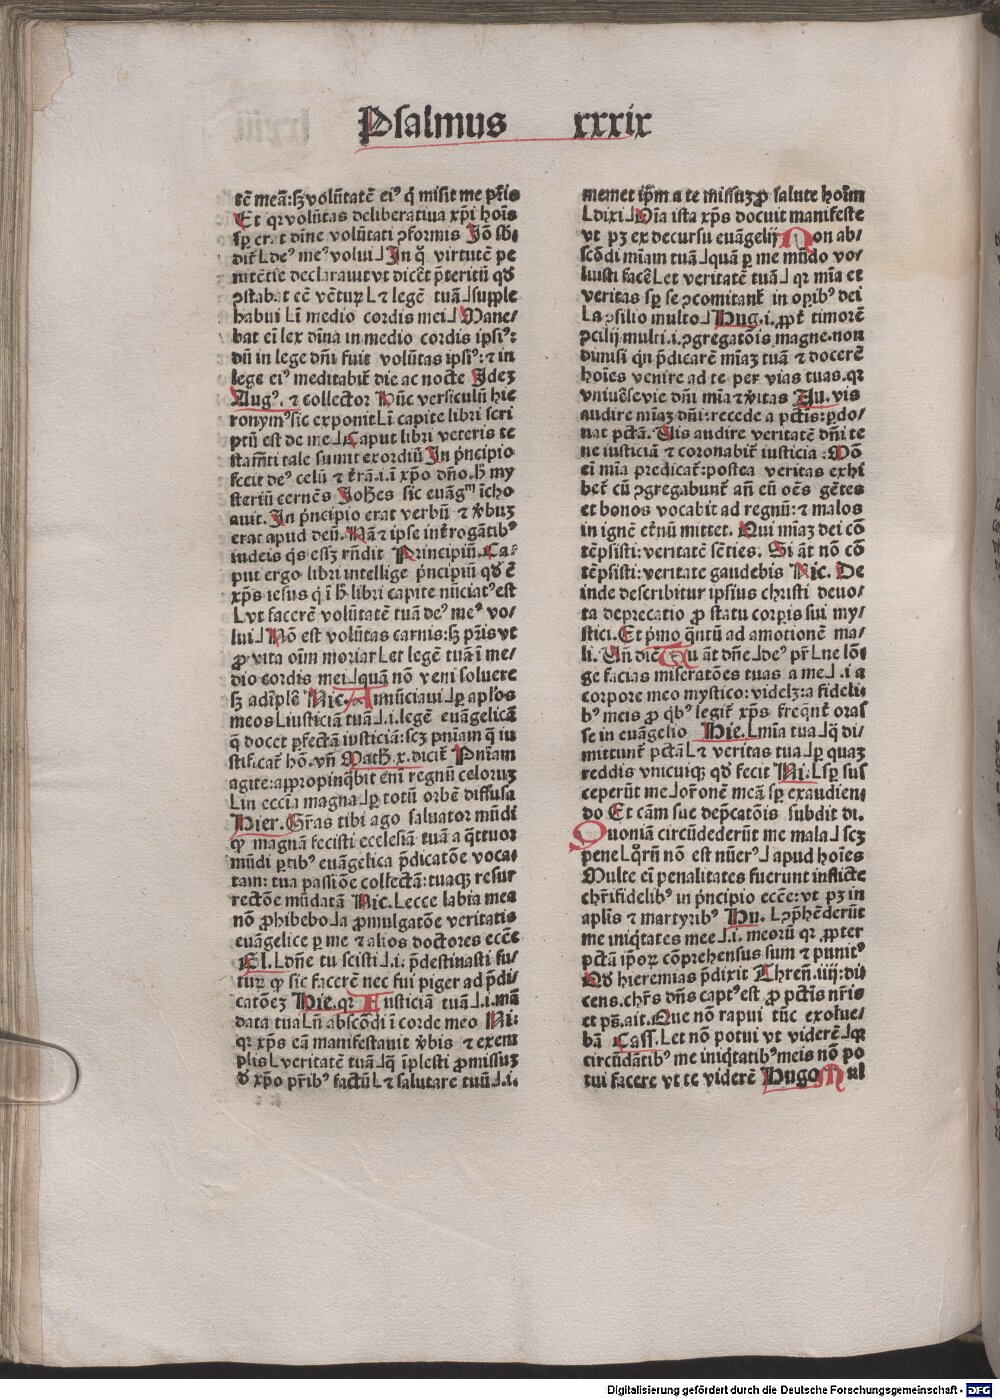 Psalmus xxxix
tē meā: sꝫ volūtatē ei⁹ q̇ misit me p̄ris
Et qꝛ volūtas deliberatiua xp̄i hoīs
sꝑ erat diīne volūtati ꝯformis Jō sb̄-
dit̄ ⌊ de⁹ me⁹ volui ⌋ In q̄ virtutē pe
nitētie declarauit vt dicēt p̄teritū qđ
ꝯstabat eē vētuꝝ ⌊ ⁊ legē tuā ⌋ supple
habui ⌊ ī medio cordis mei ⌋ Mane/
bat eī lex diīna in medio cordis ipsi⁹:
dū in lege dn̄i fuit volūtas ipsi⁹: ⁊ in
lege ei⁹ meditabit̄ die ac nocte Jdeꝫ
Aug⁹. ⁊ collector Hūc versiculū hie
ronym⁹ sic exponit ⌊ ī capite libri scri
ptū est de me ⌋ Caput libri veteris te
stam̄ti tale sumit exordiū In p̄ncipio
fecit de⁹ celū ⁊ t̄rā .i. ī xp̄o dn̄o. h̄ my
steriū cernēs Joh̄es sic euāgᵐ īcho
auit. In p̄ncipio erat verbū ⁊ v̄buꝫ
erat apud deū. Nā ⁊ ipse int̄rogātib⁹
iudeis q̇s esꝫ rn̄dit Principiū. Ca-
put ergo libri intellige p̄ncipiū qđ ē
xp̄s iesus q̇ ī h̄ libri capite nūciat⁹ est
⌊ vt facerē volūtatē tuā de⁹ me⁹ vo/
lui ⌋ Nō est volūtas carnis: sꝫ p̄ris vt
ꝓ vita oīm moriar ⌊ et legē tuā ī me/
dio cordis mei ⌋ quā nō veni soluere
sꝫ adīplē Nic. Annūciaui ⌋ ꝑ apl̄os
meos ⌊ iusticiā tuā ⌋ .i. legē euāgelicā
q̄ docet ꝑfectā iusticiā: scꝫ pn̄iam q̄ iu
stificat̄ hō. vn̄ Math̄. x. dicit̄ Pn̄iam
agite: appropinq̄bit eni regnū celoruꝫ
⌊ in eccīa magna ⌋ ꝑ totū orbē diffusa
Hier. Gr̄as tibi ago saluator mūdi
ꝙ magnā fecisti ecclesiā tuā a q̄ttuor
mūdi ꝑtib⁹ euāgelica p̄dicatōe voca-
tam: tua passiōe collectā: tuaqꝫ resur
rectōe mūdatā Nic. ⌊ ecce labia mea
nō ꝓhibebo ⌋ a ꝓmulgatōe veritatis
euāgelice ꝑ me ⁊ alios doctores ecc̄e
El. ⌊ dn̄e tu scisti ⌋ .i. p̄destinasti fu/
tuꝝ ꝙ sic facerē nec fui piger ad p̄di-
catōeꝫ Hie. qꝛ Iusticiā tuā ⌋ .i. mā
data tua ⌊ n̄ abscōdi ī corde meo Ni:
qꝛ xp̄s eā manifestauit v̄bis ⁊ exem
plis ⌊ veritatē tuā ⌋ q̄ īplesti ꝓmissuꝫ
đ xp̄o p̄rib⁹ factū ⌊ ⁊ salutare tuū ⌋ .i.
memet ip̄m a te missuꝫ ꝓ salute hoīm
⌊ dixi ⌋ Oīa ista xp̄s docuit manifeste
vt pꝫ ex decursu euāgelij Non ab/
scōdi mīam tuā ⌋ quā ꝑ me mūdo vo/
luisti facē ⌊ et veritatē tuā ⌋ qꝛ mīa et
veritas sꝑ se ꝯcomitant̄ in oꝑib⁹ dei
⌊ a ꝯsilio multo ⌋ Hug. i. ꝓpt̄ timorē
ꝯcilij multi .i. ꝯgregatōis magne. non
dimisi qn̄ p̄dicarē mīaꝫ tuā ⁊ docerē
hoīes venire ad te per vias tuas. qꝛ
vniūse vie dn̄i mīa ⁊ v̄itas Au. vis
audire mīaꝫ dn̄i: recede a pctīs: ꝑdo-
nat pctā. Uis audire veritatē dn̄i te
ne iusticiā ⁊ coronabit̄ iusticia: Mō
eī mīa predicat̄: postea veritas exhi
bet̄ cū ꝯgregabunt̄ an̄ eū oēs gētes
et bonos vocabit ad regnū: ⁊ malos
in ignē et̄nū mittet. Qui mīaꝫ dei cō
tēpsisti: veritatē sēties. Si āt nō cō
tēpsisti: veritate gaudebis Nic. De
inde describitur ipsius christi deuo-
ta deprecatio ꝓ statu corꝑis sui my-
stici. Et p̄mo q̄ntū ad amotionē ma-
li. Un̄ diē Tu āt dn̄e ⌋ de⁹ pr̄ ⌊ ne lō-
ge facias miseratōes tuas a me ⌋ .i. a
corpore meo mystico: videlꝫ: a fideli-
b⁹ meis ꝓ q̇b⁹ legit̄ xp̄s freq̄nt̄ oras
se in euāgelio Hie. ⌊ mīa tua ⌋ q̄ di-
mittunt̄ pctā ⌊ ⁊ veritas tua ⌋ ꝑ quaꝫ
reddis vnicuiqꝫ qđ fecit Ni. ⌊ sꝑ sus
ceperūt me ⌋ or̄onē meā sꝑ exaudien-
do Et cām sue dep̄catōis subdit di.
Quoniā circūdederūt me mala ⌋ scꝫ
pene ⌊ qōrū nō est nūer⁹ ⌋ apud hoīes
Multe eī penalitates fuerunt inflicte
chr̄ifidelib⁹ in p̄ncipio ecc̄e: vt pꝫ in
aplis ⁊ martyrib⁹ Hu. ⌊ ꝯp̄hēderūt
me iniq̄tates mee ⌋ .i. meorū qꝛ ꝓpter
pctā ip̄oꝝ cōprehensus sum ⁊ punit⁹
Qđ hieremias p̄dixit Thren̄. iiij: di-
cens. chr̄s dn̄s capt⁹ est ꝓ pctīs nr̄is
et ps̄. ait. Que nō rapui tūc exolue-
bā Cass. ⌊ et nō potui vt viderē ⌋ qꝛ
circūdātib⁹ me iniq̄tatib⁹ meis nō po
tui facere vt te viderē Hugo Mul
Digitalisierung gefördert durch die Deutsche Forschungsgemeinschaft - DFG